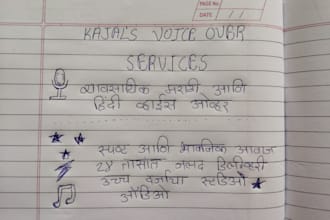 PAGE No.
DATE / /
KAJAL'S VOICE OVER
SERVICES
व्यावसायिक मराठी आणि
हिंदी व्हाईस ओव्हर
स्पष्ट आणि भावनिक आवाज
२४ तासात जलद डिलिव्हरी
उच्च दर्जाचा स्टुडिओ
ऑडिओ